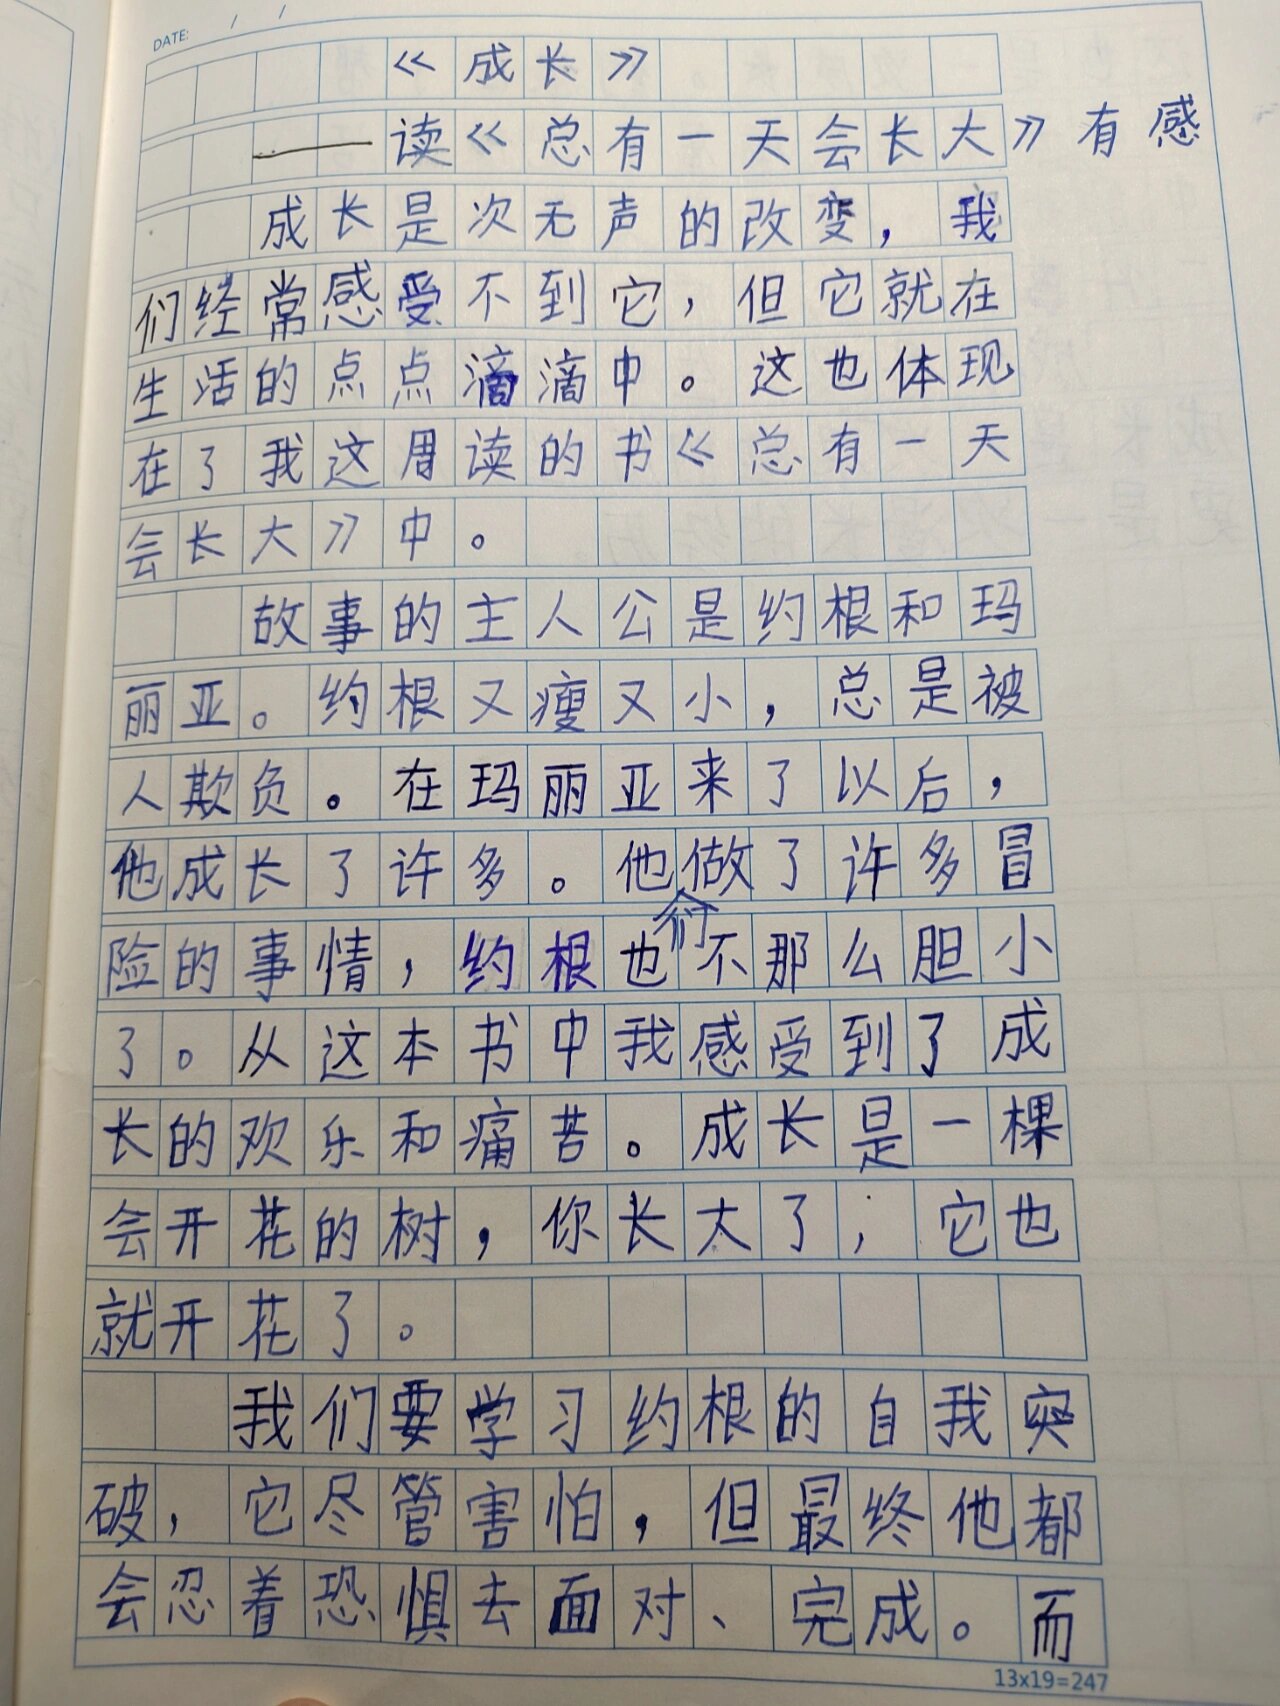 DATE: / /
《成长》
——读《总有一天会长大》有感
成长是次无声的改变，我
们经常感受不到它，但它就在
生活的点点滴滴中。这也体现
在了我这周读的书《总有一天
会长大》中。
故事的主人公是约根和玛
丽亚。约根又瘦又小，总是被
人欺负。在玛丽亚来了以后，
他成长了许多。他做了许多冒
险的事情，约根也不那么胆小
了。从这本书中我感受到了成
长的欢乐和痛苦。成长是一棵
会开花的树，你长大了，它也
就开花了。
我们要学习约根的自我突
破，它尽管害怕，但最终他都
会忍着恐惧去面对、完成。而
13x19=247